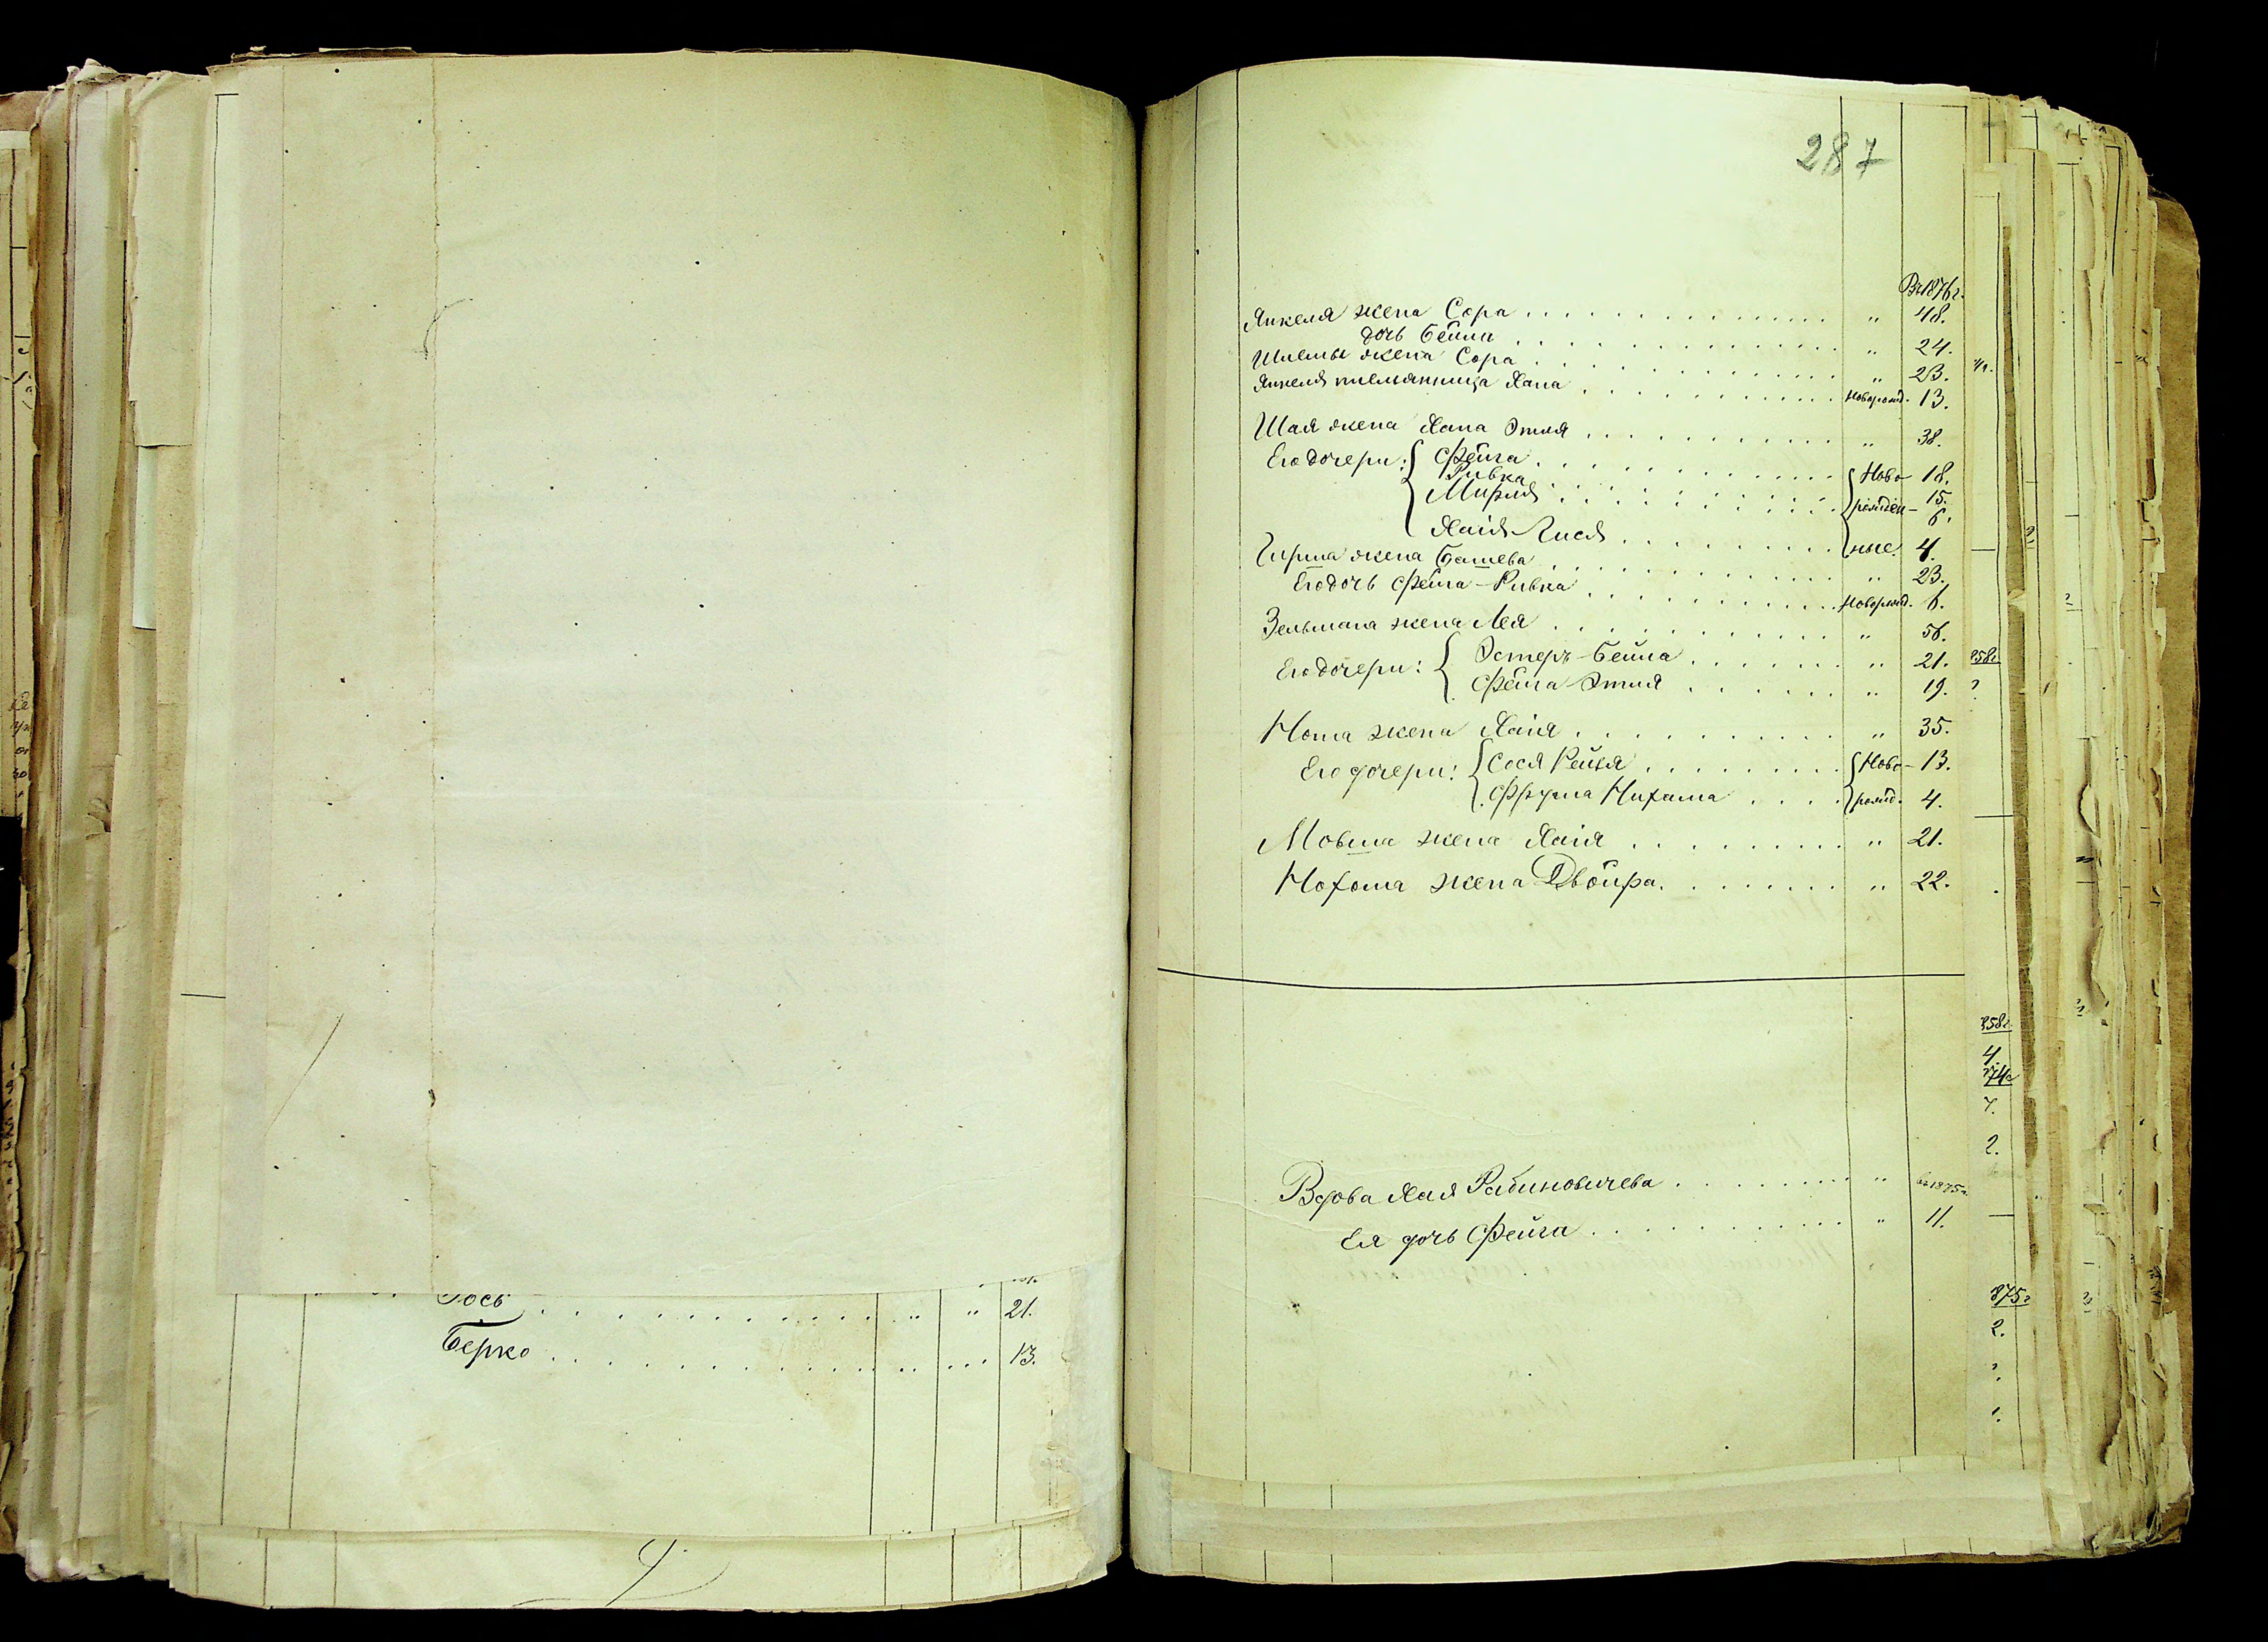 Іось . . . . . . . . . . . " " 21.
Берко . . . . . . . . . . . " " 13.
287
Въ 1876 г.
Янкеля жена Сора . . . . . . . . . . . " 48.
дочь Бейла . . . . . . . . . . . " 24.
Шлемы жена Сора . . . . . . . . . . . " 23.
Янкеля племянница Хана . . . . . . . . . . . новорожд. 13.
Шая жена Хана Этля . . . . . . . . . . . " 38.
Его дочери: Фейга . . . . . . . . . . . Ново- 18.
Ривка . . . . . . . . . . . рожден- 15.
Мирля . . . . . . . . . . . 6.
Хаія Гися . . . . . . . . . . . ные. 4.
Гирша жена Башева . . . . . . . . . . . " 23.
Его дочь Фейга-Ривка . . . . . . . . . . . новорожд. 6.
Зельмана жена Лея . . . . . . . . . . . " 56.
Его дочери: Эстеръ-Бейла . . . . . . . " 21.
Фейга Этля . . . . . . . " 19.
Нота жена Хаія . . . . . . . . . . . " 35.
Его дочери: Сося Рейзя . . . . . . . . . Ново- 13.
Фрума Нихама . . . . рожд. 4.
Мовша жена Хаія . . . . . . . . . " 21.
Нохома жена Двойра . . . . . . . . " 22.
Вдова Хая Рабиновичева . . . . . . . . " въ 1875 г.
Ея дочь Фейга . . . . . . . . . . . " 11.
858 г.
858 г.
4.
74 г
7.
2.
875 г
2.
1.